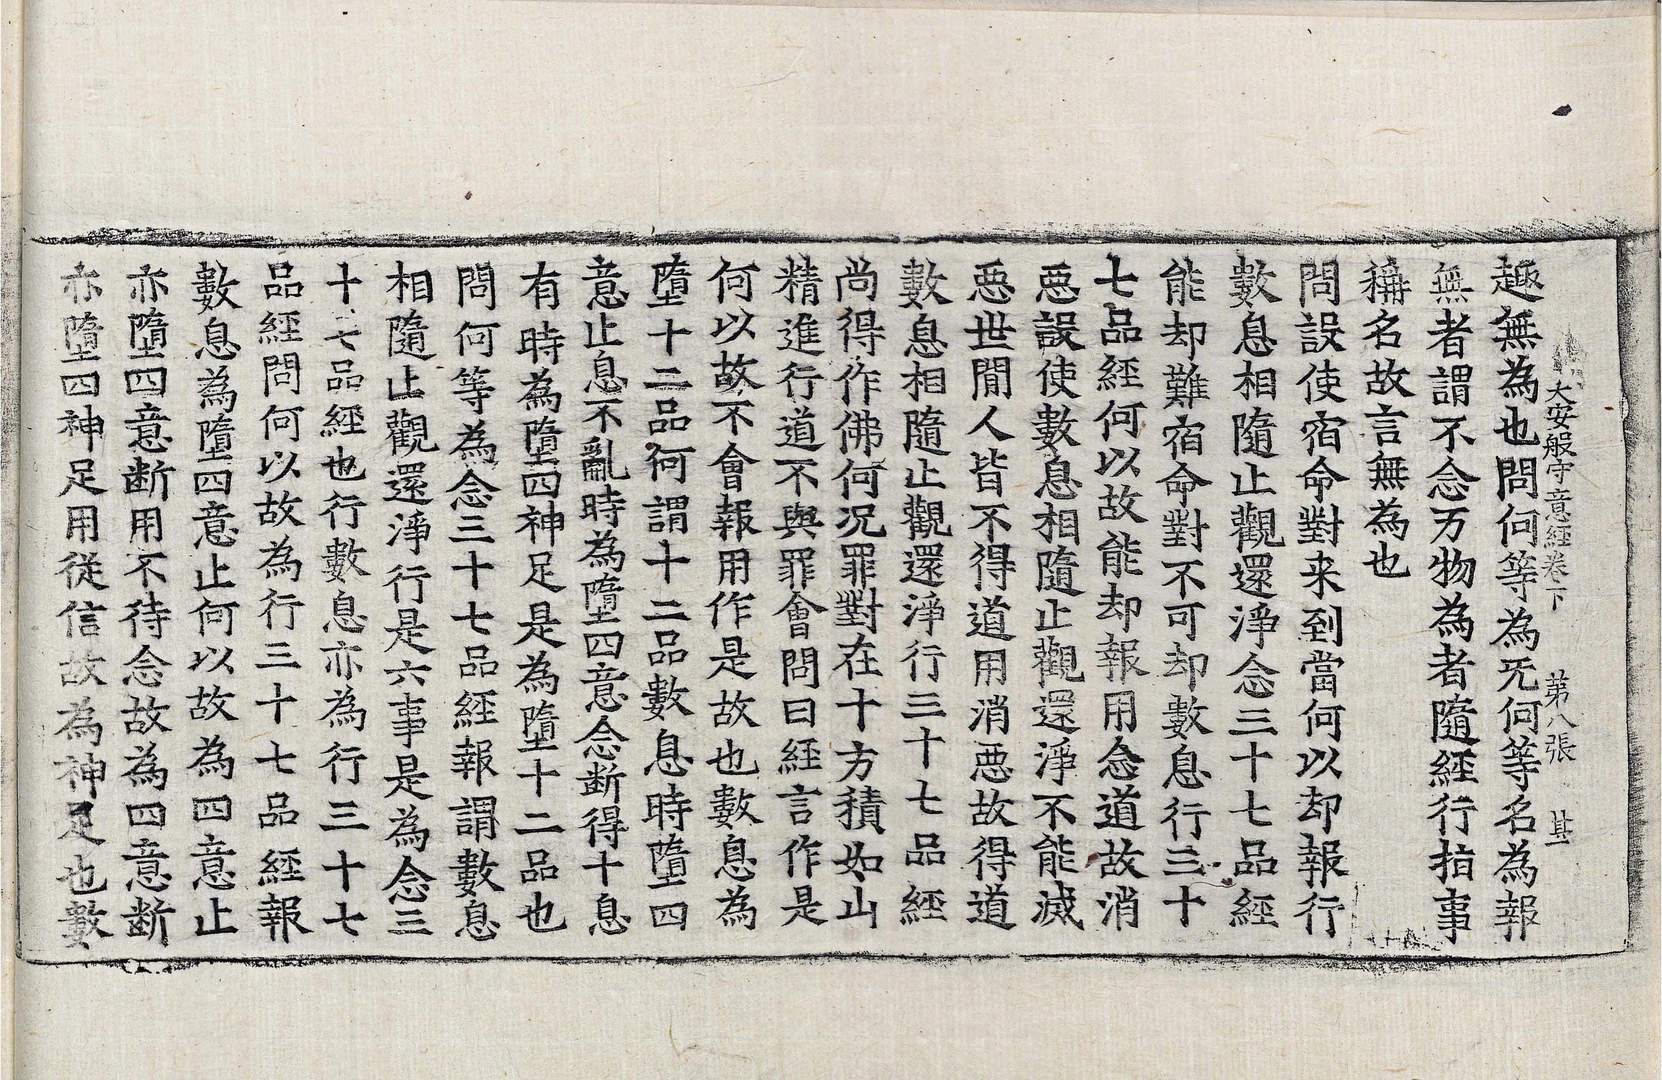 大安般守意經卷下 第八張 其
趣無為也問何等為无何等名為報
無者謂不念万物為者隨經行指事
稱名故言無為也
問設使宿命對来到當何以却報行
數息相隨止觀還淨念三十七品經
能却難宿命對不可却數息行三十
七品經何以故能却報用念道故消
惡設使數息相隨止觀還淨不能滅
惡世閒人皆不得道用消惡故得道
數息相隨止觀還淨行三十七品經
尚得作佛何况罪對在十方積如山
精進行道不與罪會問曰經言作是
何以故不會報用作是故也數息為
墮十二品何謂十二品數息時墮四
意止息不亂時為墮四意念断得十息
有時為墮四神足是為墮十二品也
問何等為念三十七品經報謂數息
相隨止觀還淨行是六事是為念三
十七品經也行數息亦為行三十七
品經問何以故為行三十七品經報
數息為墮四意止何以故為四意止
亦墮四意断用不待念故為四意断
亦墮四神足用從信故為神足也數